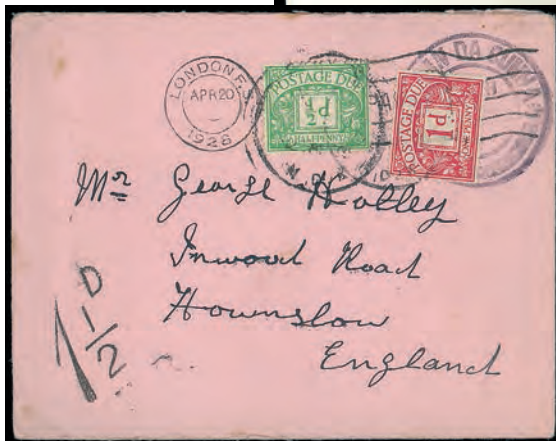 LONDON F.S
APR 20
1926
POSTAGE DUE
½d
HALFPENNY
POSTAGE DUE
1d
ONE PENNY
Mr George Holley
Inwood Road
Hounslow
England
1½D